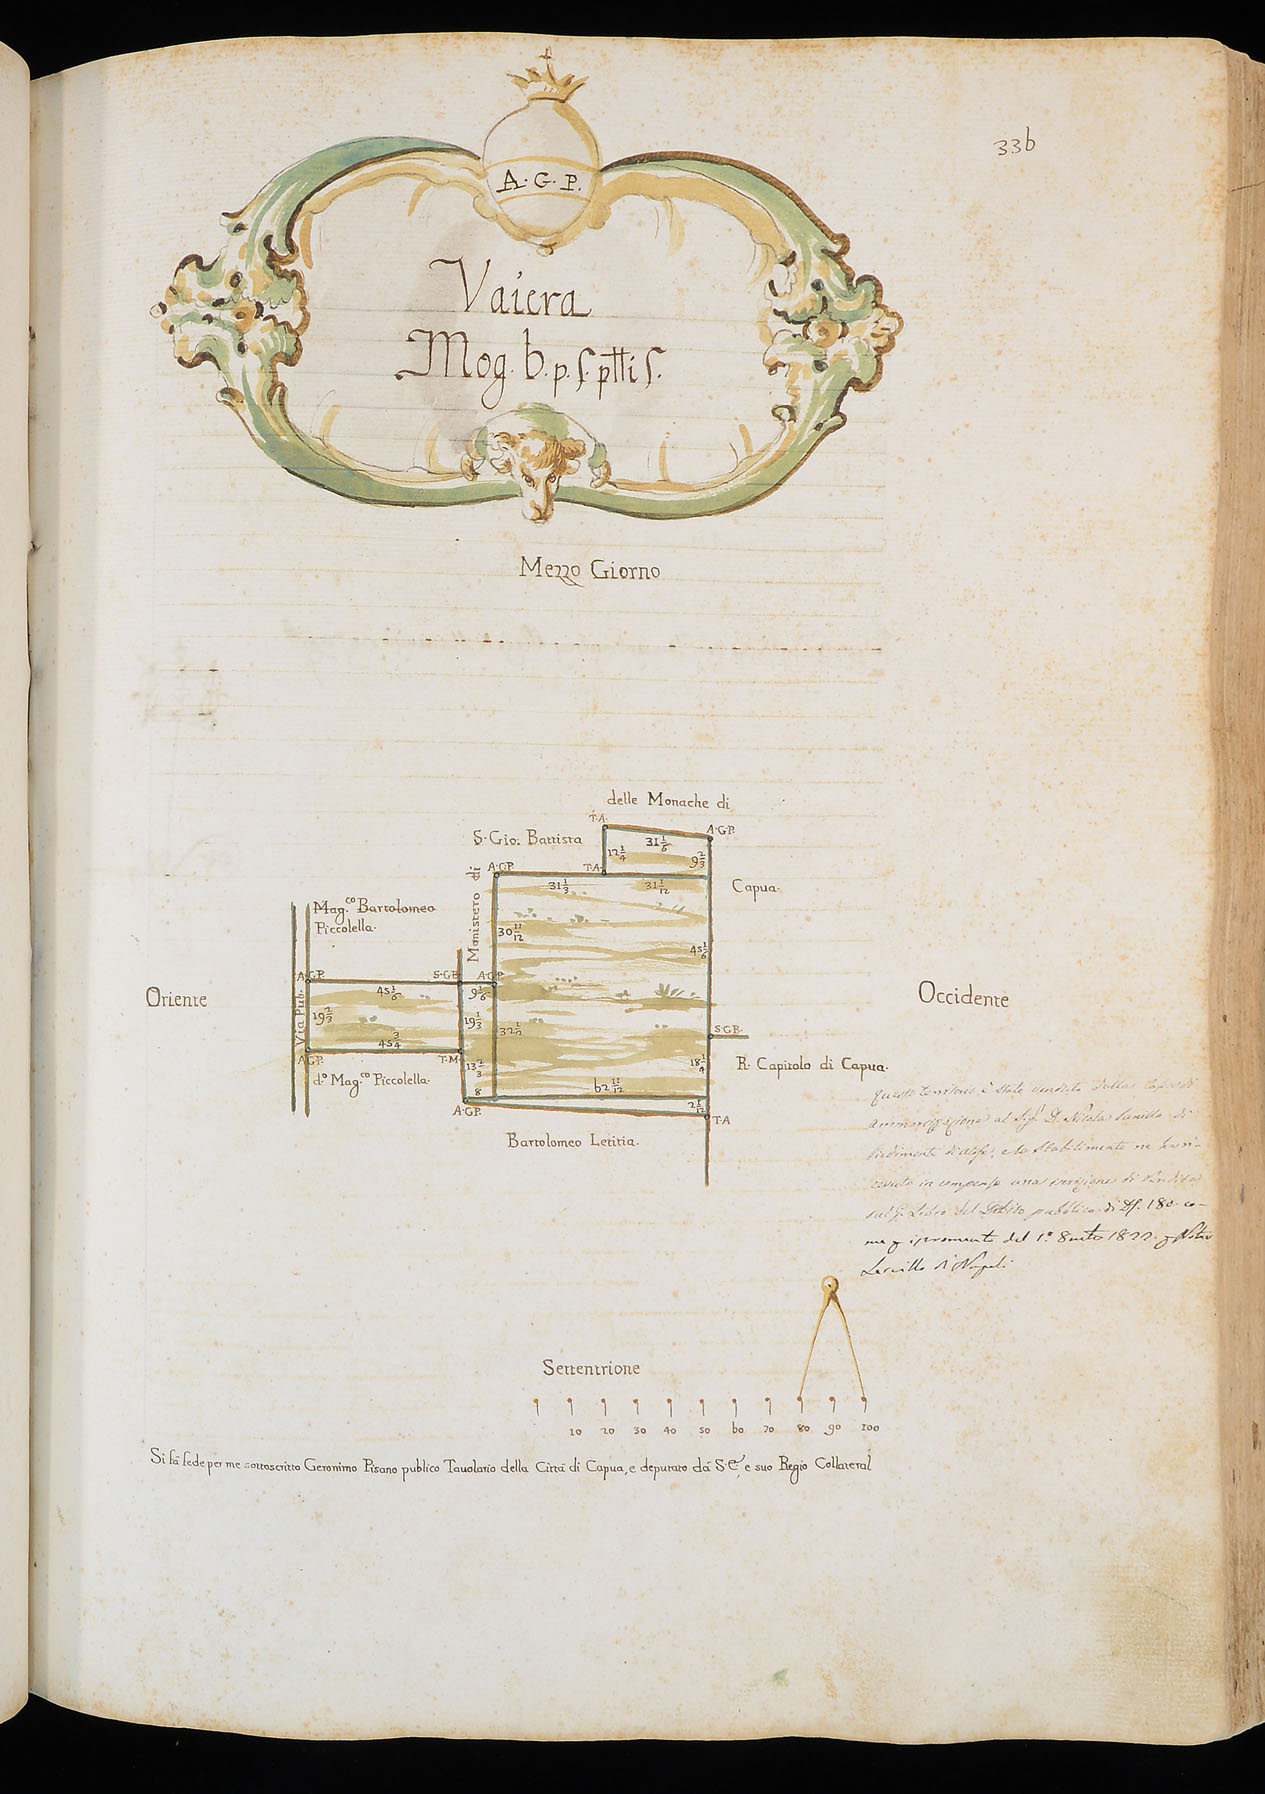 33b
A. G. P.
Vaiera
Mog. b. p. s. ptti s.
Mezzo Giorno
delle Monache di
T.A.
A.GP.
S. Gio: Battista
31 1/6
12 1/4
9 2/3
A.GP.
T.A.
31 1/3
31 1/12
Capua.
Monistero di
Mag.co Bartolomeo
Piccolella.
30 11/12
45 1/6
A.GP.
S.GB.
A.GP.
Oriente
45 1/6
9 1/6
Occidente
Via Pub.
19 2/3
19 1/3
32 1/2
S.GB.
45 3/4
A.GP.
T.M.
13 2/3
18 1/4
R. Capitolo di Capua.
d.o Mag.co Piccolella.
8
b2 11/12
2 1/12
A.GP.
T.A
Bartolomeo Letitia.
questo territorio è stato venduto dalla Cassa di
ammortizzazione al Sig. D. Nicola
di
d'Alife, e lo Stabilimento ne ha ri-
cevuto in compenso una iscrizione di rendita
sul G. Libro del Debito pubblico di 180 co-
me del 1.o 1822
di Napoli
Settentrione
10 20 30 40 50 b0 70 80 90 100
Si fà fede per me sottoscritto Geronimo Pisano publico Tauolario della Città di Capua, e deputato dà S.E., e suo Regio Collateral